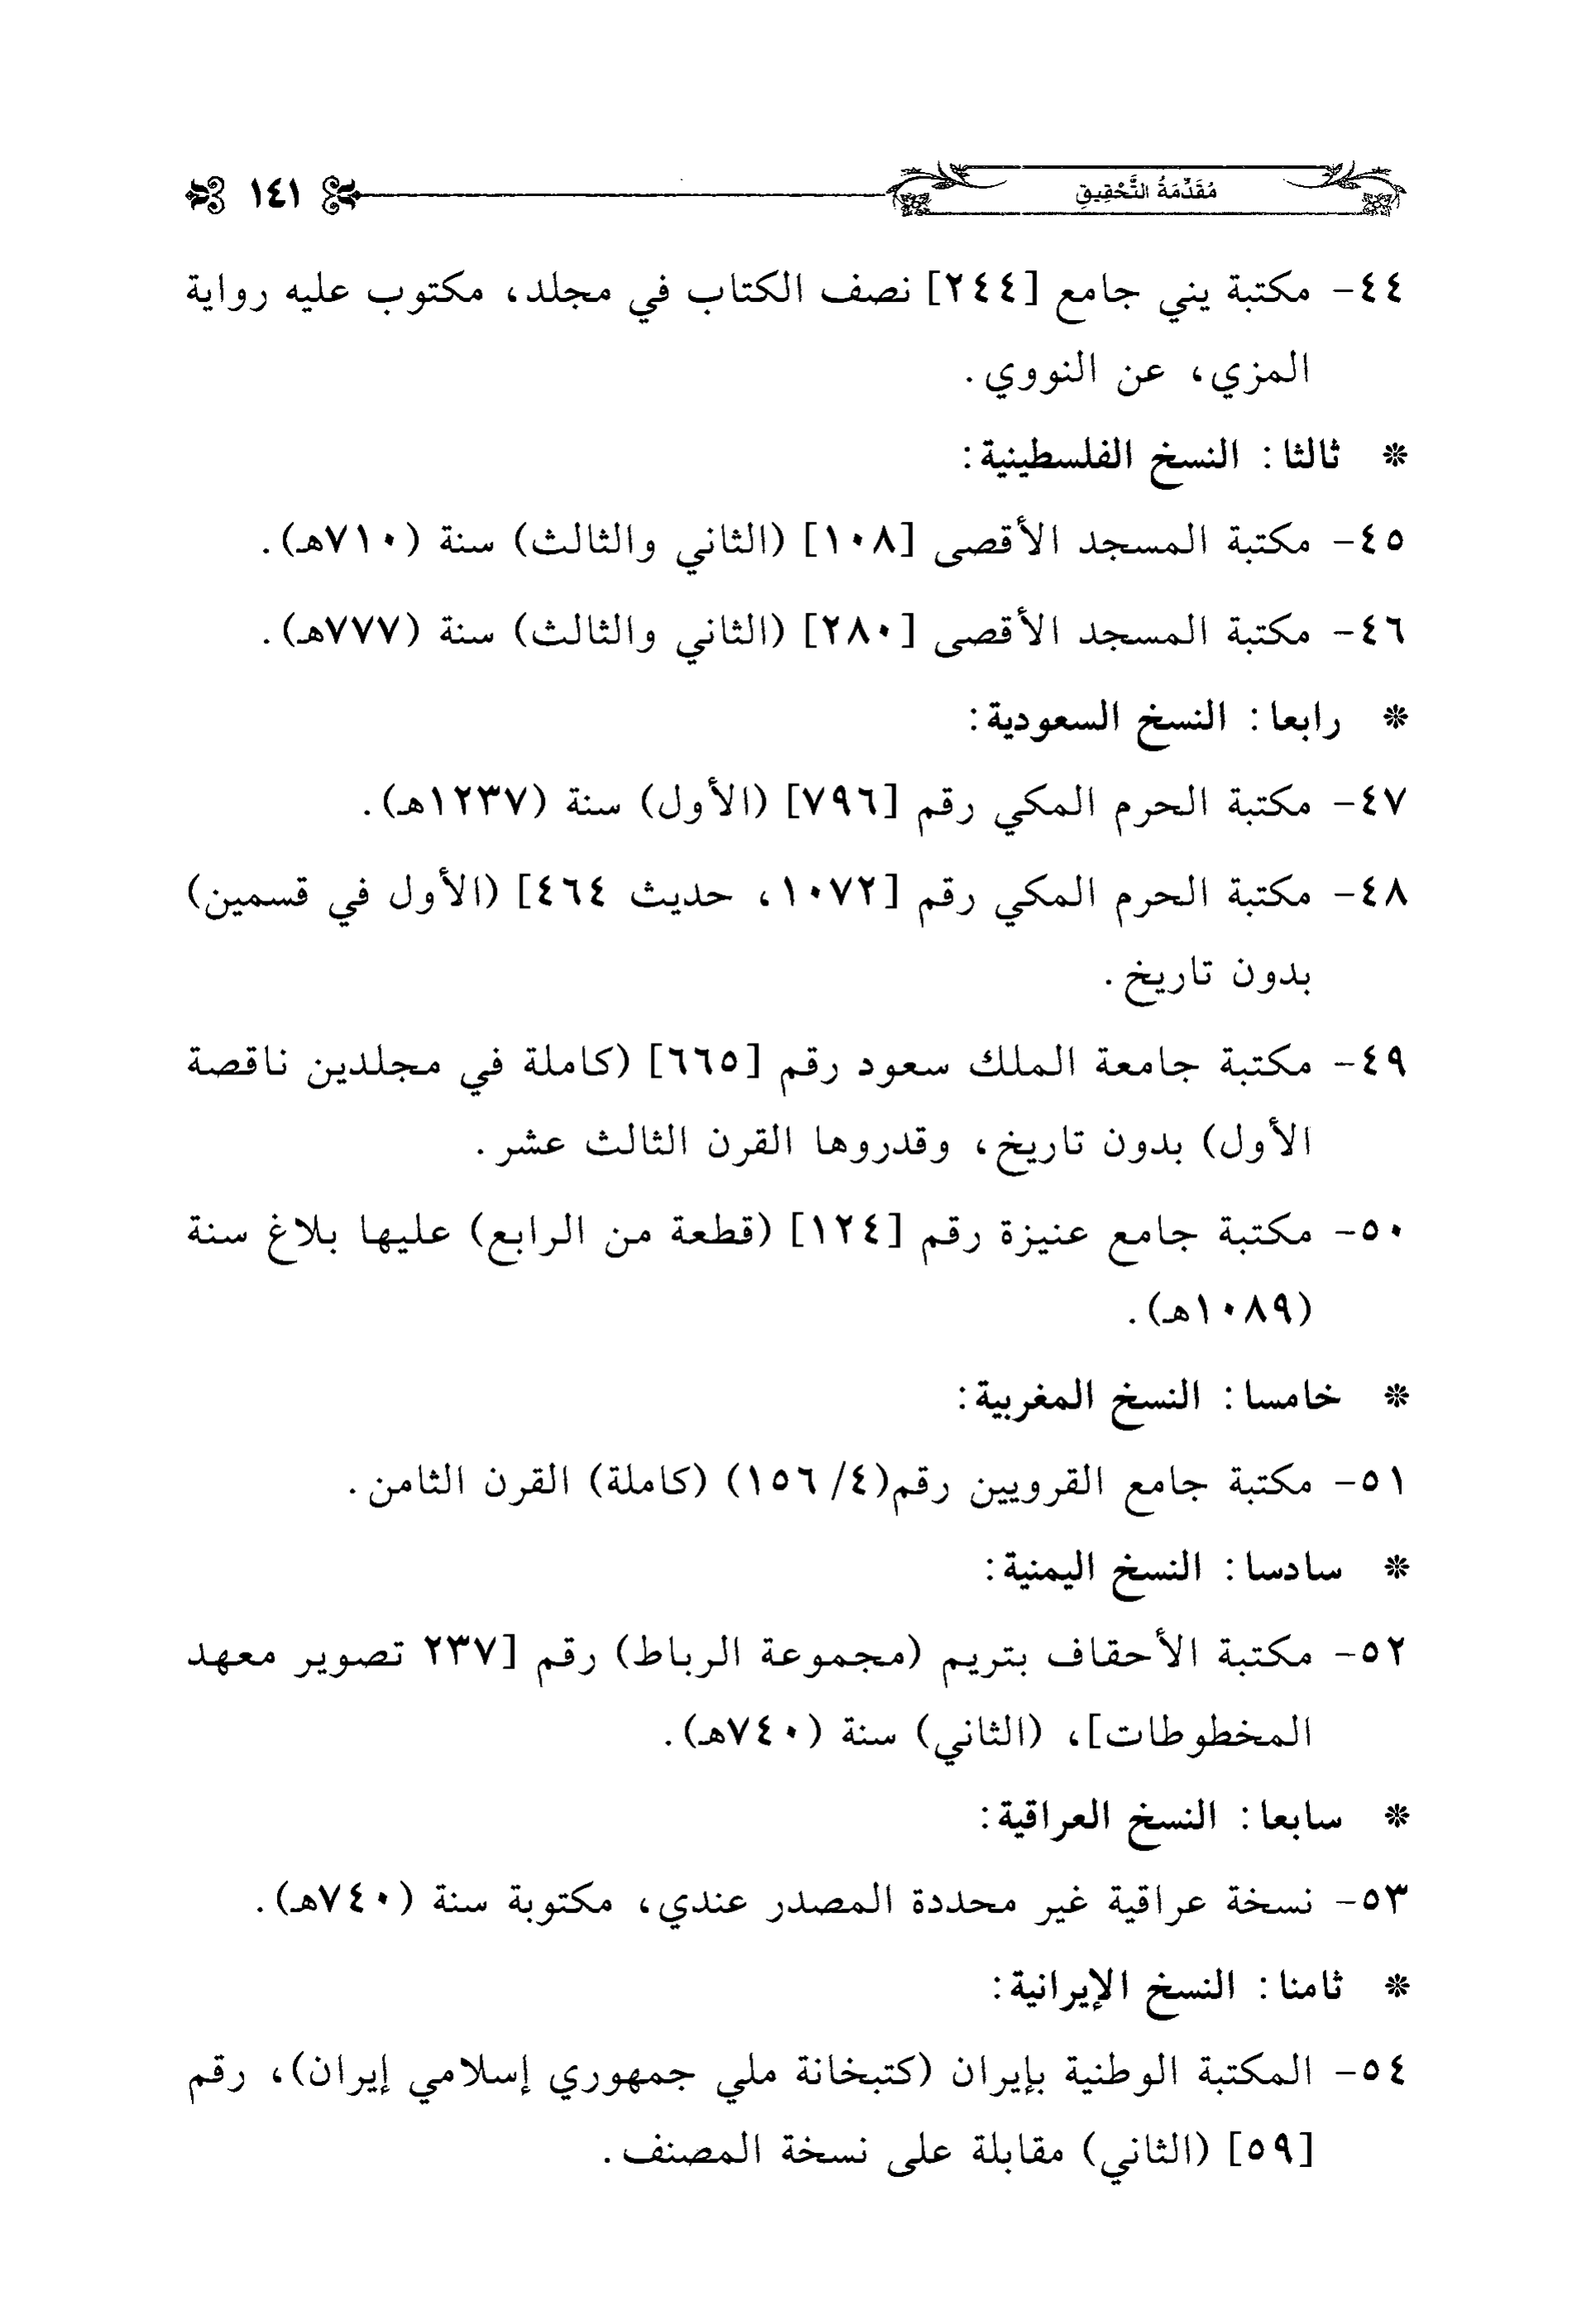 مُقَدِّمَةُ التَّحْقِيقِ
١٤١
٤٤- مكتبة يني جامع [٢٤٤] نصف الكتاب في مجلد، مكتوب عليه رواية
المزي، عن النووي.
* ثالثا: النسخ الفلسطينية:
٤٥- مكتبة المسجد الأقصى [١٠٨] (الثاني والثالث) سنة (٧١٠هـ).
٤٦- مكتبة المسجد الأقصى [٢٨٠] (الثاني والثالث) سنة (٧٧٧هـ).
* رابعا: النسخ السعودية:
٤٧- مكتبة الحرم المكي رقم [٧٩٦] (الأول) سنة (١٢٣٧هـ).
٤٨- مكتبة الحرم المكي رقم [١٠٧٢، حديث ٤٦٤] (الأول في قسمين)
بدون تاريخ.
٤٩- مكتبة جامعة الملك سعود رقم [٦٦٥] (كاملة في مجلدين ناقصة
الأول) بدون تاريخ، وقدروها القرن الثالث عشر.
٥٠- مكتبة جامع عنيزة رقم [١٢٤] (قطعة من الرابع) عليها بلاغ سنة
(١٠٨٩هـ).
* خامسا: النسخ المغربية:
٥١- مكتبة جامع القرويين رقم(٤/ ١٥٦) (كاملة) القرن الثامن.
* سادسا: النسخ اليمنية:
٥٢- مكتبة الأحقاف بتريم (مجموعة الرباط) رقم [٢٣٧ تصوير معهد
المخطوطات]، (الثاني) سنة (٧٤٠هـ).
* سابعا: النسخ العراقية:
٥٣- نسخة عراقية غير محددة المصدر عندي، مكتوبة سنة (٧٤٠هـ).
* ثامنا: النسخ الإيرانية:
٥٤- المكتبة الوطنية بإيران (كتبخانة ملي جمهوري إسلامي إيران)، رقم
[٥٩] (الثاني) مقابلة على نسخة المصنف.